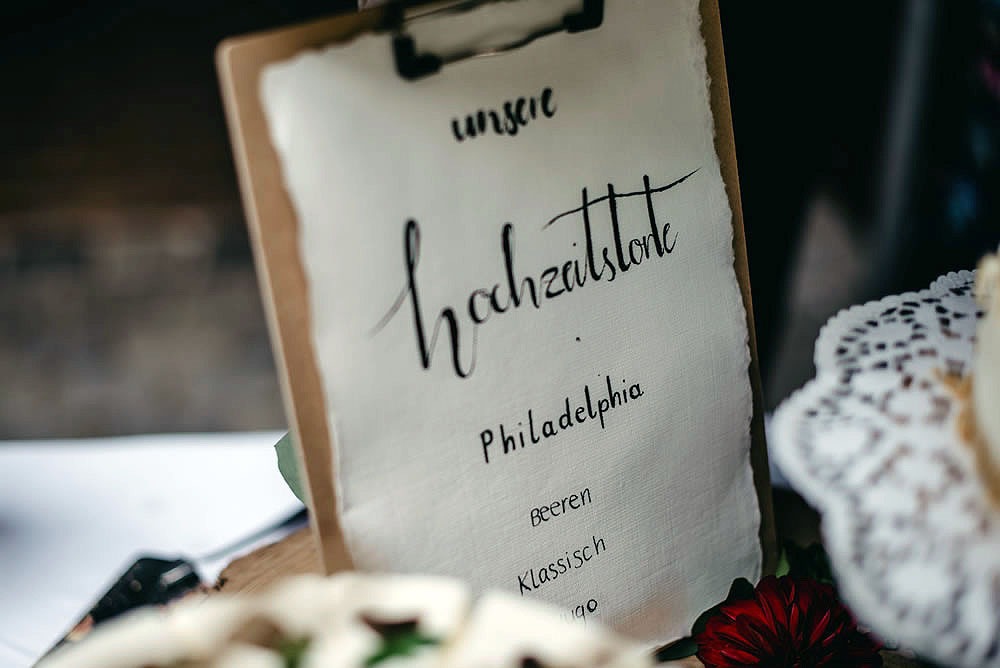 unsere
hochzeitstorte
Philadelphia
Beeren
Klassisch